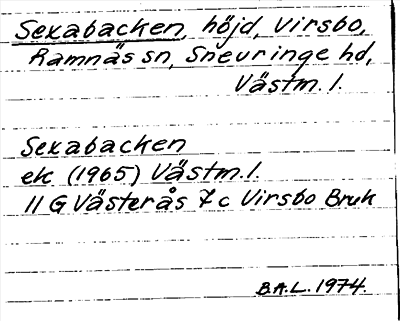 Sexabacken, höjd, Virsbo,
Ramnäs sn, Sneuringe hd,
Västm. l.
Sexabacken
ek (1965) Västm. l.
11 G Västerås 7 c Virsbo Bruk
B.A.L. 1974.